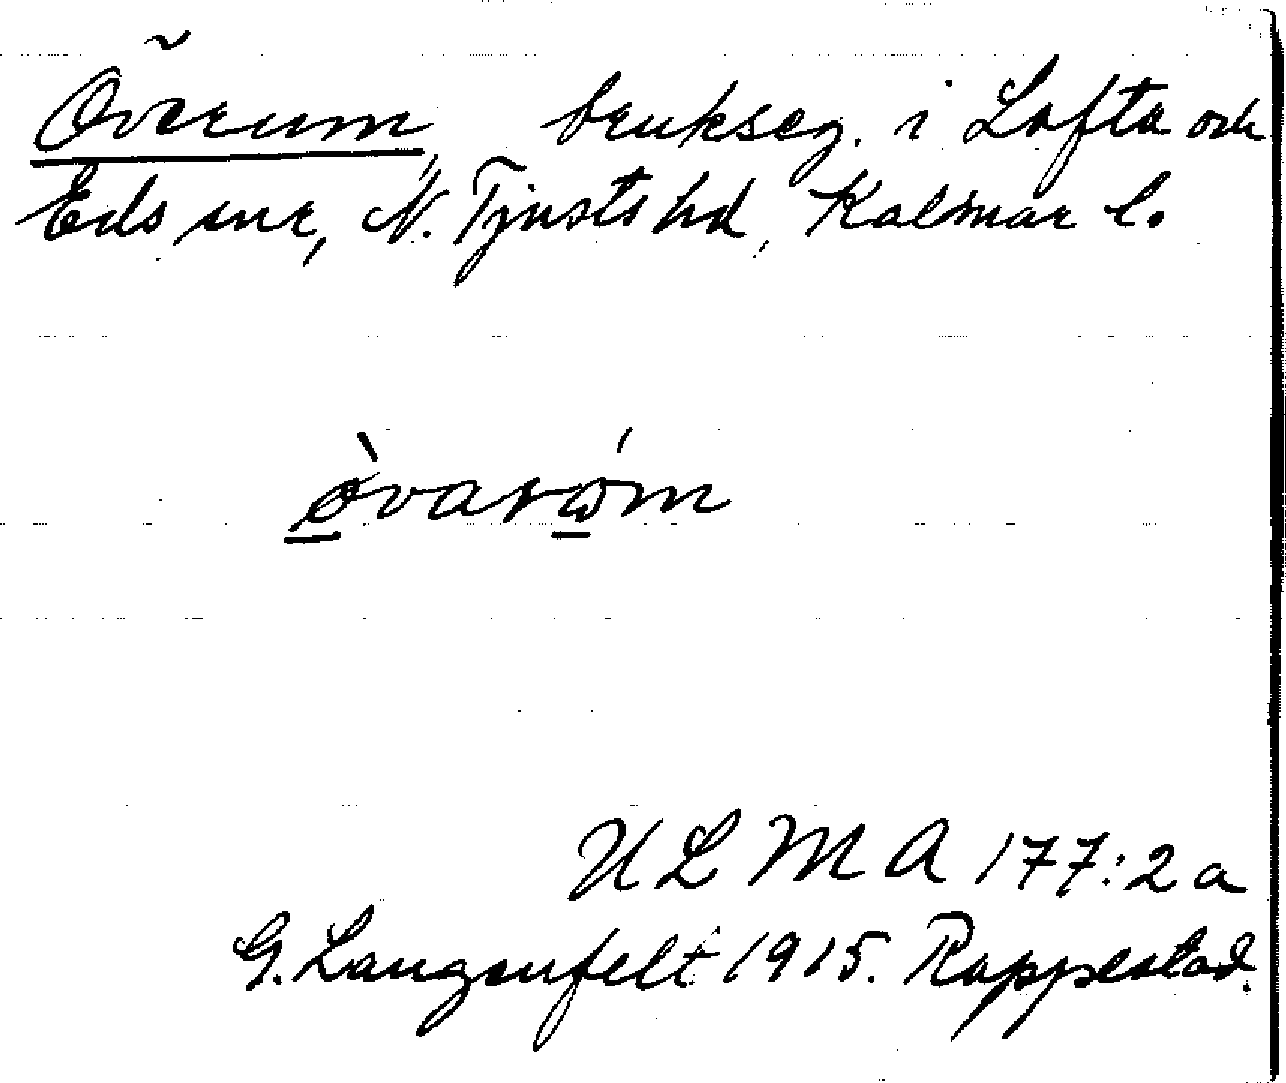 Överum, brukseg. i Lofta och
Eds snr, N. Tjusts hd, Kalmar l.
ø̀varώ̲m
ULMA 177:2a
G. Langenfelt 1915. Rappestad.